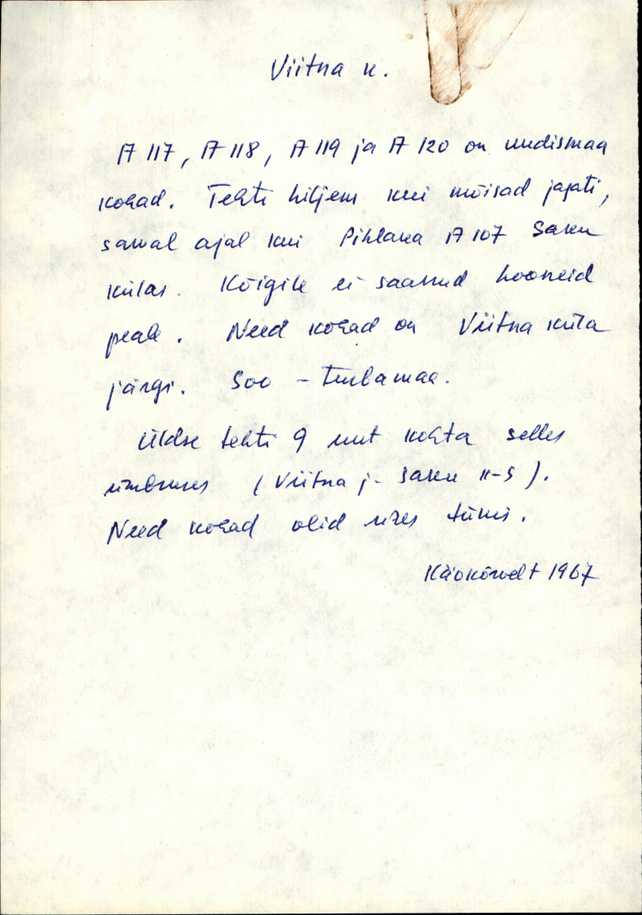 Viitna k.
A 117, A 118, A 119 ja A 120 on uudismaa
kohad. Tehti hiljem kui mõisad jagati,
samal ajal kui Pihlaka A 107 Saku
külas. Kõigile ei saanud hooneid
peale. Need kohad on Viitna küla
järgi. Soo - Turbamaa.
Üldse tehti 9 uut kohta selles
ümbruses (Viitna j. Saku k-s).
Need kohad olid uues
Käokõrvelt 1967